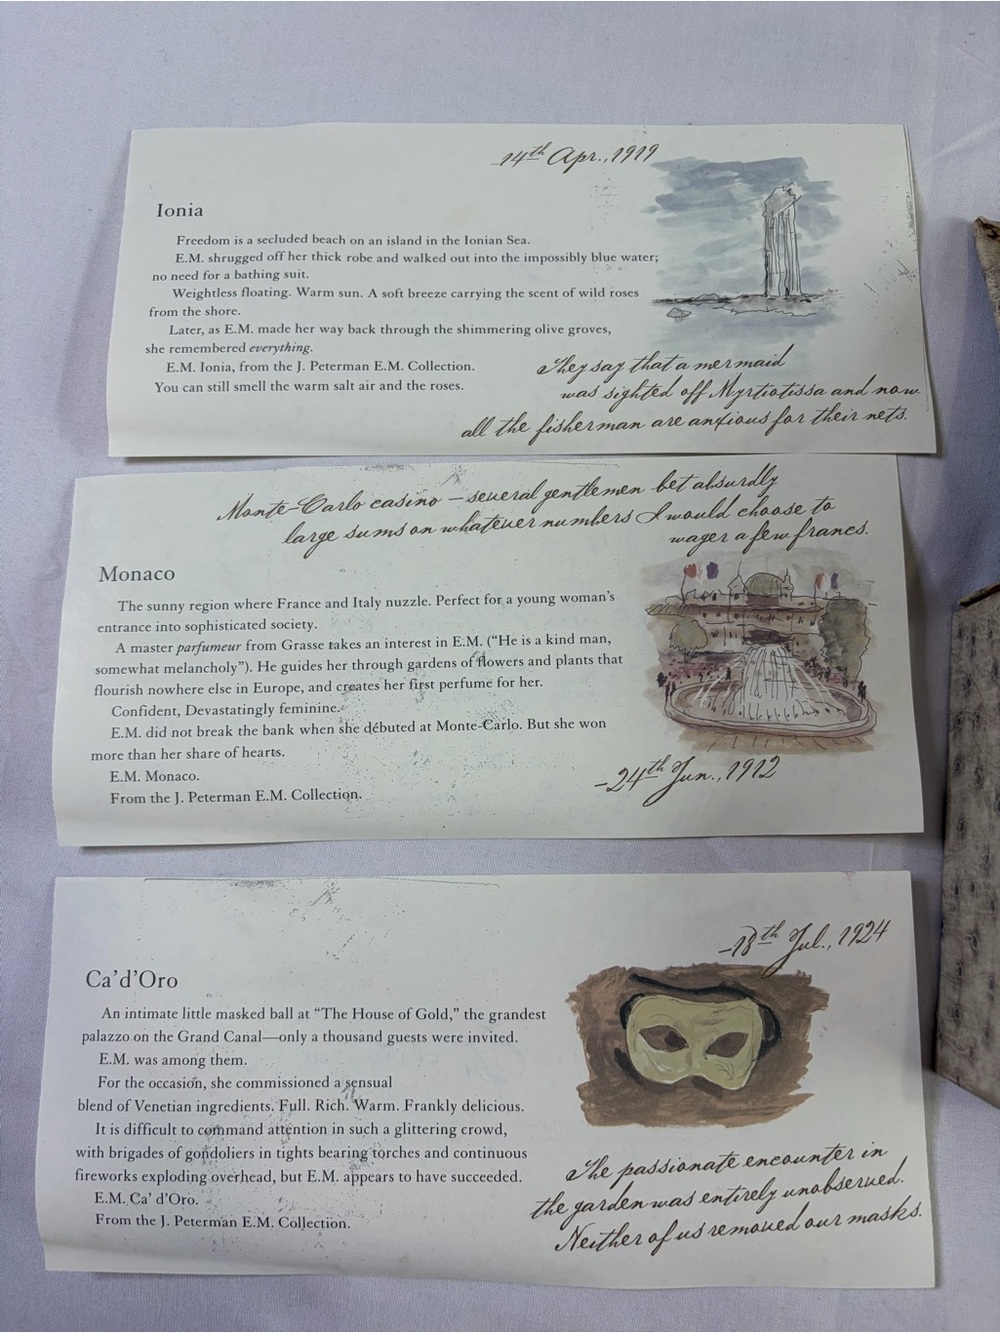 14th Apr., 1919
Ionia
Freedom is a secluded beach on an island in the Ionian Sea.
E.M. shrugged off her thick robe and walked out into the impossibly blue water;
no need for a bathing suit.
Weightless floating. Warm sun. A soft breeze carrying the scent of wild roses
from the shore.
Later, as E.M. made her way back through the shimmering olive groves,
she remembered everything.
E.M. Ionia, from the J. Peterman E.M. Collection.
You can still smell the warm salt air and the roses.
They say that a mermaid
was sighted off Myrtiotissa and now
all the fisherman are anxious for their nets.
Monte-Carlo casino – several gentlemen bet absurdly
large sums on whatever numbers I would choose to
wager a few francs.
Monaco
The sunny region where France and Italy nuzzle. Perfect for a young woman's
entrance into sophisticated society.
A master parfumeur from Grasse takes an interest in E.M. (“He is a kind man,
somewhat melancholy”). He guides her through gardens of flowers and plants that
flourish nowhere else in Europe, and creates her first perfume for her.
Confident, Devastatingly feminine.
E.M. did not break the bank when she débuted at Monte-Carlo. But she won
more than her share of hearts.
E.M. Monaco.
From the J. Peterman E.M. Collection.
–24th Jun., 1912
–18th Jul., 1924
Ca'd'Oro
An intimate little masked ball at “The House of Gold,” the grandest
palazzo on the Grand Canal—only a thousand guests were invited.
E.M. was among them.
For the occasion, she commissioned a sensual
blend of Venetian ingredients. Full. Rich. Warm. Frankly delicious.
It is difficult to command attention in such a glittering crowd,
with brigades of gondoliers in tights bearing torches and continuous
fireworks exploding overhead, but E.M. appears to have succeeded.
E.M. Ca' d'Oro.
From the J. Peterman E.M. Collection.
The passionate encounter in
the garden was entirely unobserved.
Neither of us removed our masks.